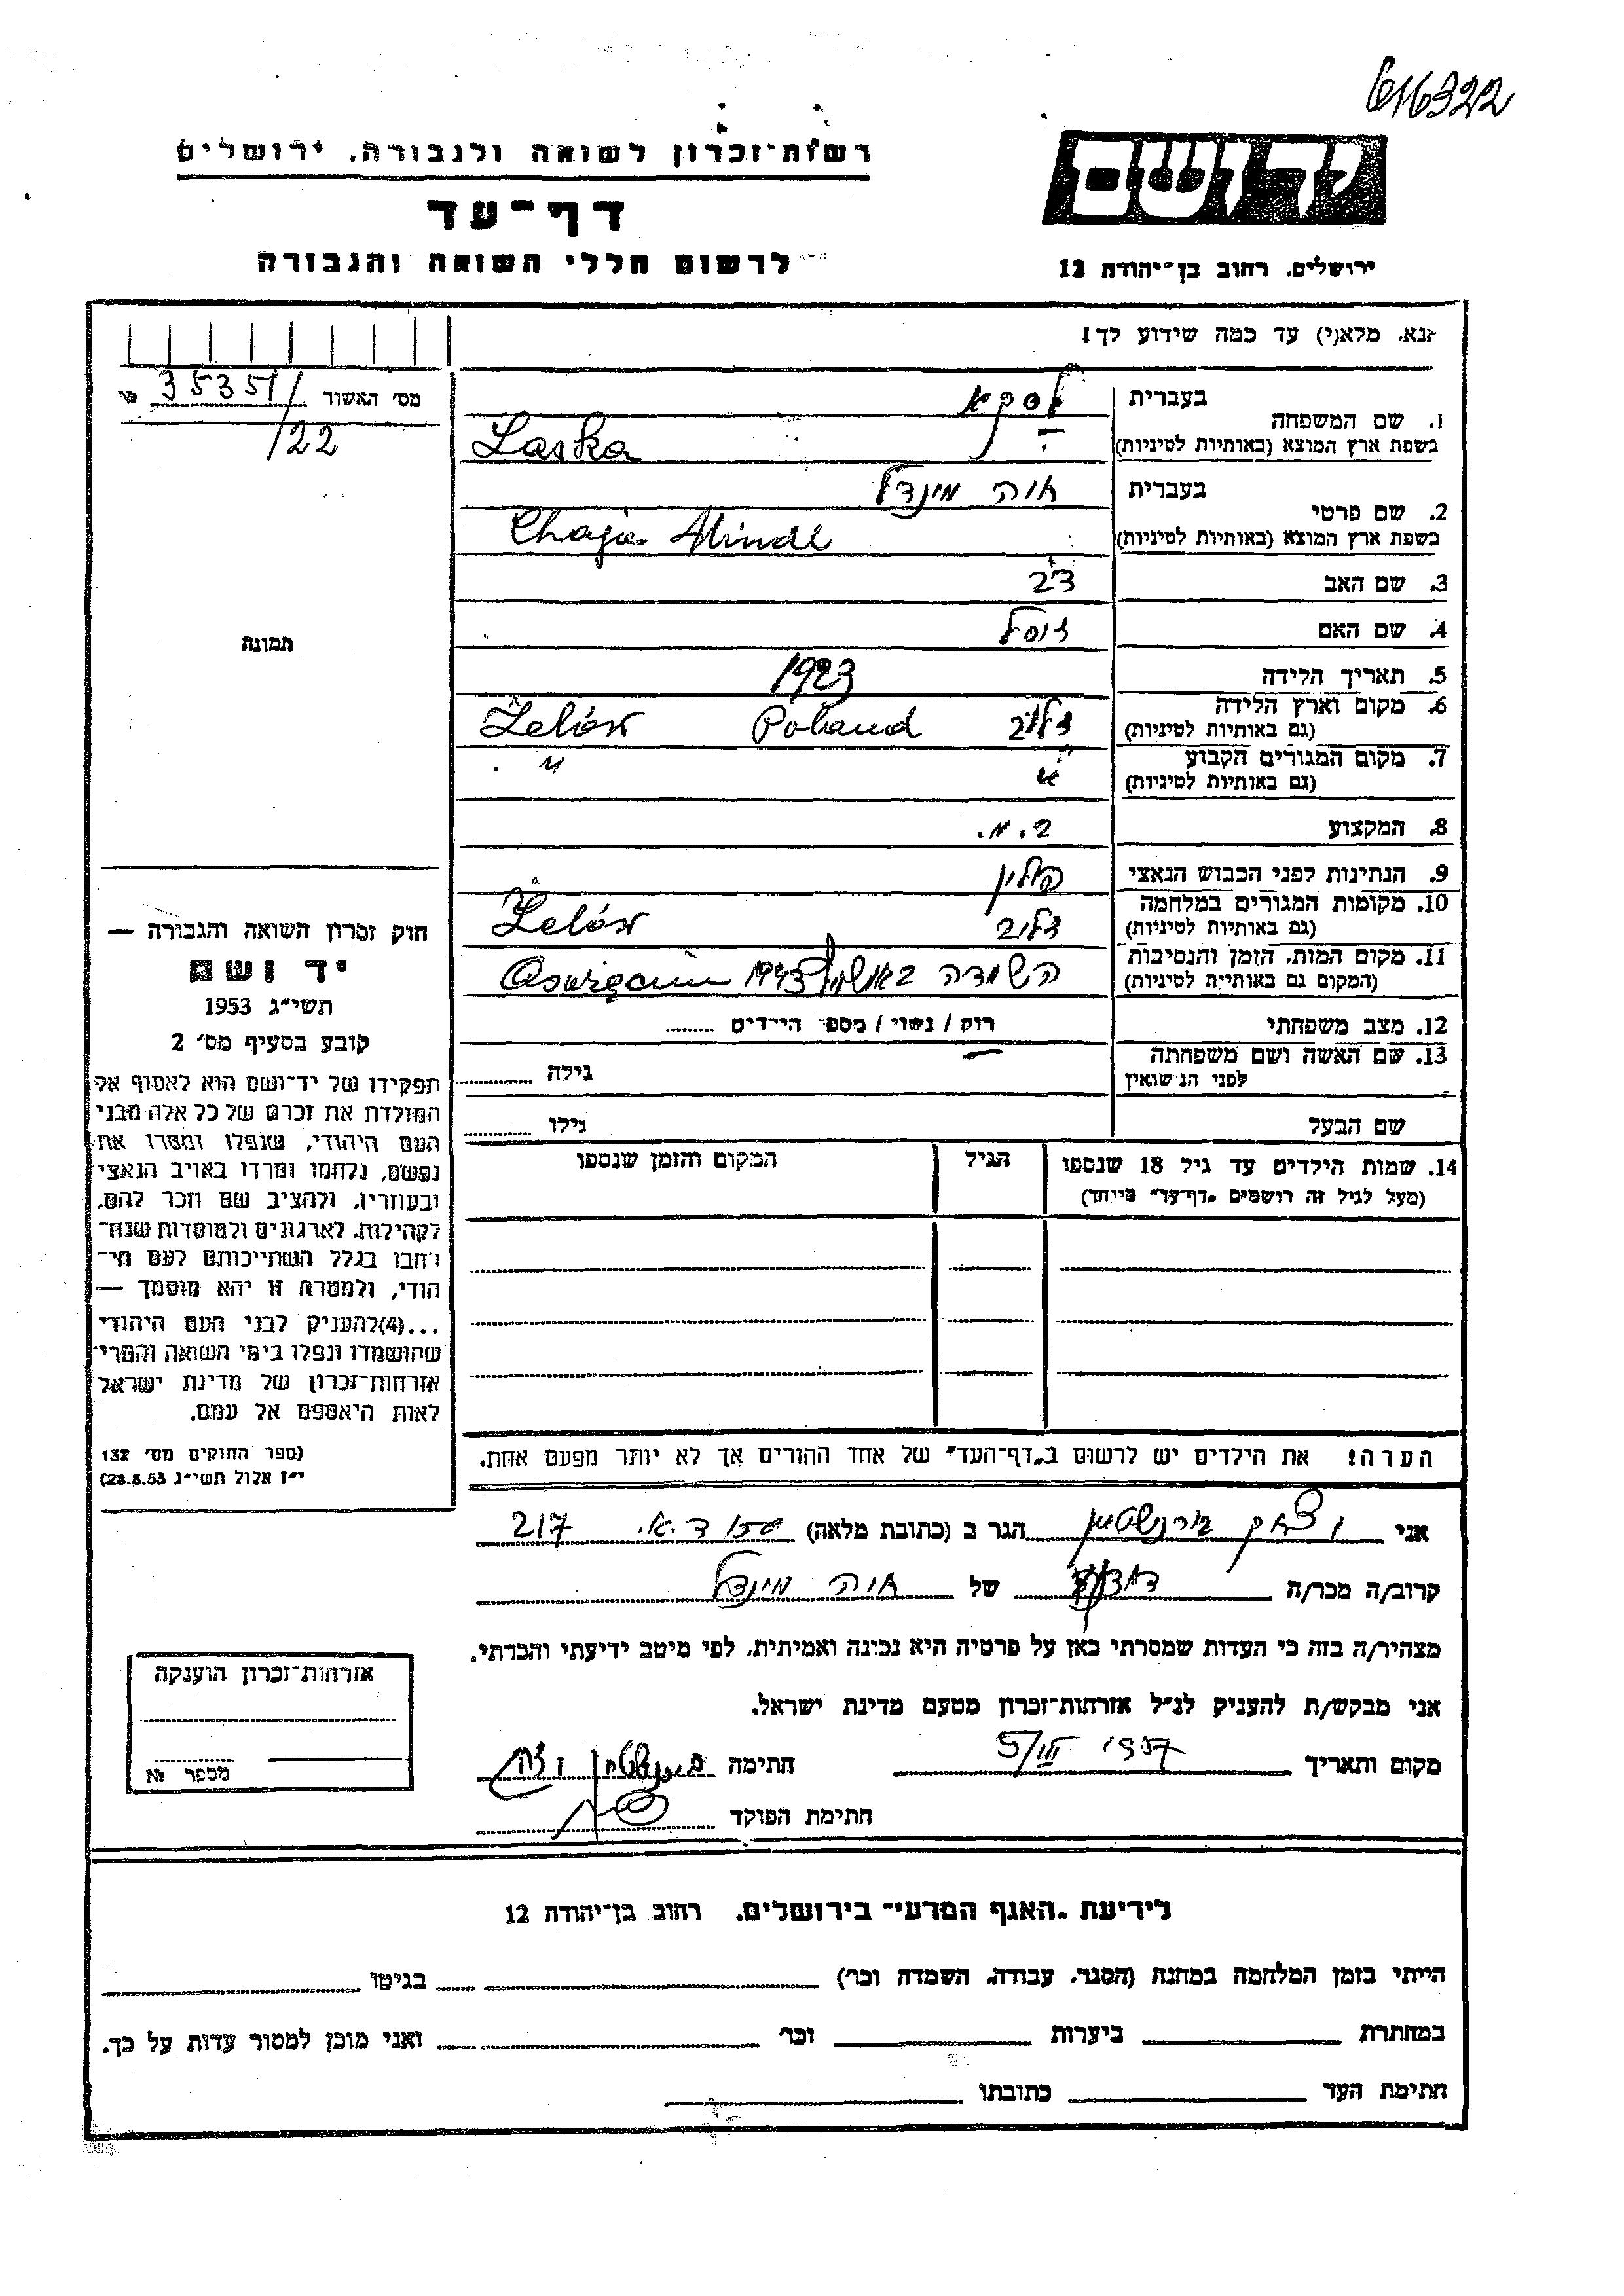 616322
רשות־זכרון לשואה ולגבורה, ירושלים
יד ושם
דף־עד
לרשום חללי השואה והגבורה
ירושלים, רחוב בן־יהודה 12
נא, מלא(י) עד כמה שידוע לך!
מס׳ האשור 35351/ №
/22
בעברית לסקא
1. שם המשפחה
בשפת ארץ המוצא (באותיות לטיניות) Laska
בעברית חיה מינדל
2. שם פרטי
בשפת ארץ המוצא (באותיות לטיניות) Chaja Mindl
3. שם האב
4. שם האם
5. תאריך הלידה 1923
6. מקום וארץ הלידה זלוב Poland Żelów
(גם באותיות לטיניות)
7. מקום המגורים הקבוע " "
(גם באותיות לטיניות)
8. המקצוע
9. הנתינות לפני הכבוש הנאצי פולין
10. מקומות המגורים במלחמה זלוב Żelów
(גם באותיות לטיניות)
11. מקום המות, הזמן והנסיבות הושמדה באושויץ 1943
(המקום גם באותיות לטיניות)
12. מצב משפחתי רוק / נשוי / מספר הילדים ........
13. שם האשה ושם משפחתה —
לפני הנישואין גילה
שם הבעל גילו
14. שמות הילדים עד גיל 18 שנספו הגיל המקום והזמן שנספו
(מעל לגיל זה רושמים „דף־עד״ מיוחד)
תמונה
חוק זכרון השואה והגבורה —
יד ושם
תשי״ג 1953
קובע בסעיף מס׳ 2
תפקידו של יד־ושם הוא לאסוף אל
המולדת את זכרם של כל אלה מבני
העם היהודי, שנפלו ומסרו את
נפשם, נלחמו ומרדו באויב הנאצי
ובעוזריו, ולהציב שם וזכר להם,
לקהילות, לארגונים ולמוסדות שנח־
רבו בגלל השתייכותם לעם הי־
הודי, ולמטרה זו יהא מוסמך —
...(4)להעניק לבני העם היהודי
שהושמדו ונפלו בימי השואה והמרי
אזרחות־זכרון של מדינת ישראל
לאות היאספם אל עמם.
(ספר החוקים מס׳ 132
י״ז אלול תשי״ג 28.8.53)
הערה! את הילדים יש לרשום ב„דף־העד״ של אחד ההורים אך לא יותר מפעם אחת.
אני הגר ב (כתובת מלאה) 217
קרוב/ה מכר/ה של חיה מינדל
מצהיר/ה בזה כי העדות שמסרתי כאן על פרטיה היא נכונה ואמיתית, לפי מיטב ידיעתי והכרתי.
אני מבקש/ת להעניק לנ״ל אזרחות־זכרון מטעם מדינת ישראל.
מקום ותאריך 1957 חתימה
חתימת הפוקד
אזרחות־זכרון הוענקה
מספר №
לידיעת „האגף המדעי״ בירושלים, רחוב בן־יהודה 12
הייתי בזמן המלחמה במחנה (הסגר, עבודה, השמדה וכו׳) בגיטו
במחתרת ביערות וכו׳ ואני מוכן למסור עדות על כך.
חתימת העד כתובתו